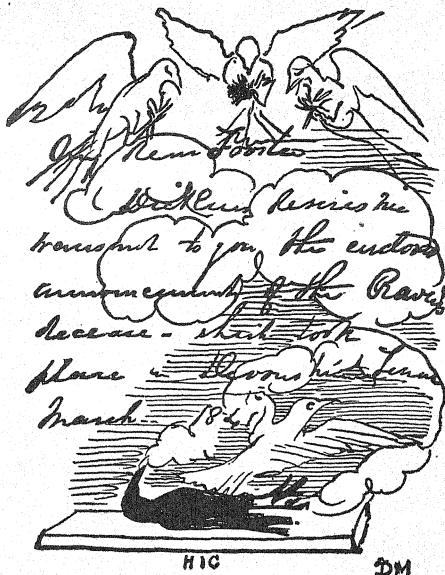 My Dear Forster
Dickens desires me
transmit to you the enclosed
announcement of the Raven's
decease - which took
place in Devonshire Terrace
March
HIC
DM